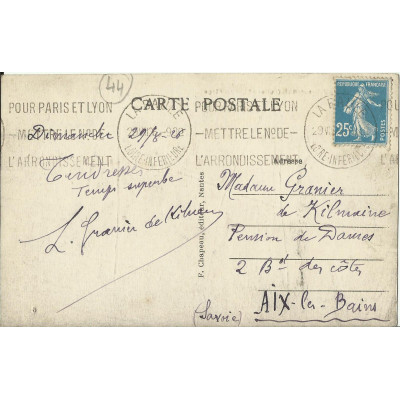 44
CARTE POSTALE
POUR PARIS ET LYON
—METTRE LE No DE—
L'ARRONDISSEMENT
LOIRE-INFERIEURE
POUR PARIS ET LYON
—METTRE LE No DE—
L'ARRONDISSEMENT
LOIRE-INFERIEURE
REPUBLIQUE FRANCAISE
25c
POSTES
Dimanche 29/8
Tendresses
Temps superbe
L. Granier de Kilmaine
F. Chapeau, éditeur, Nantes
Adresse
Madame Granier
de Kilmaine
Pension de Dames
2 Bd des côtes
AIX-les-Bains
(Savoie)